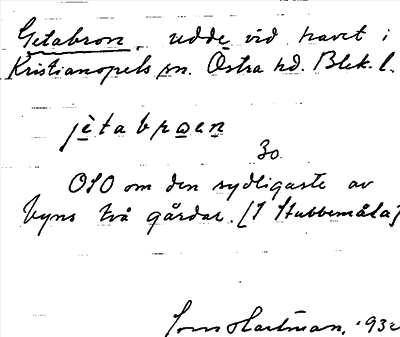 Getabron, udde vid havet i
Kristianopels sn. Östra hd. Blek. l.
jètabroen
30.
OSO om den sydligaste av
byns två gårdar. [I Stubbemåla]
Hartman, 932